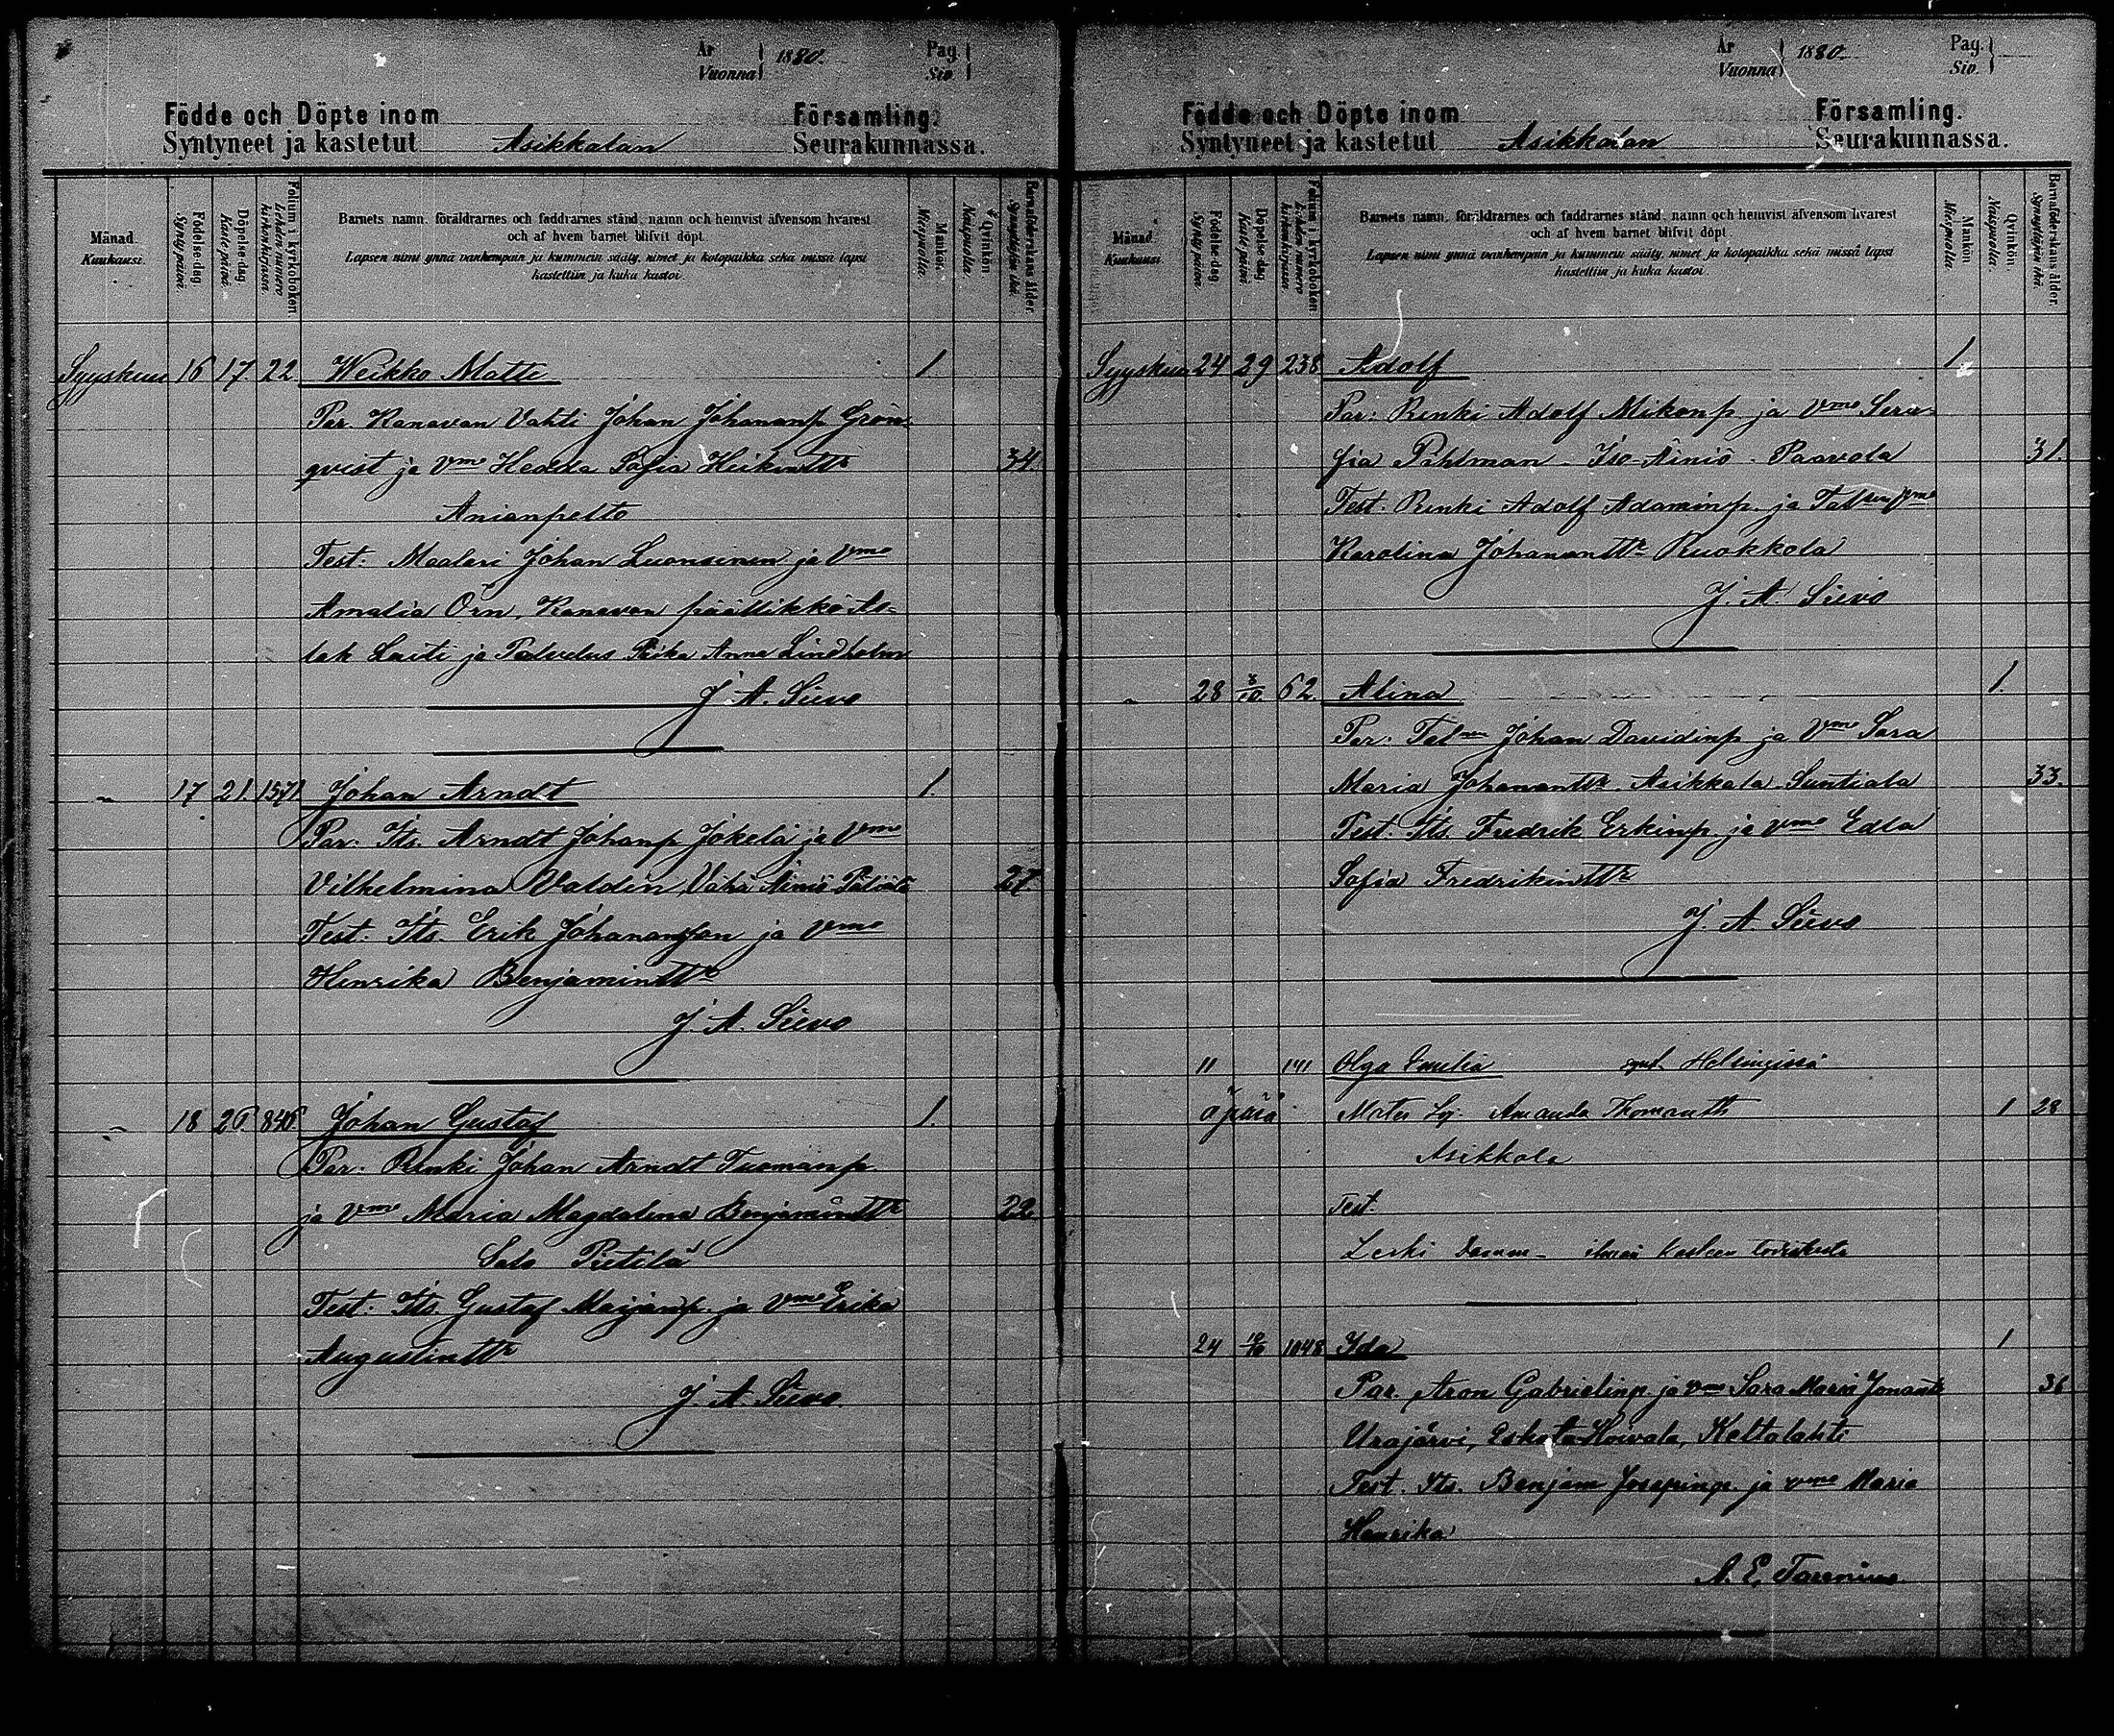 År
Vuonna
1880.
Pag.
Siv.
Födde och Döpte inom
Församling.
Syntyneet ja kastetut Asikkalan Seurakunnassa.
Månad.
Kuukausi.
Födelse-dag
Syntypäivä.
Döpelse-dag
Kastepäivä.
Folium i kyrkoboken
Lehden numero kirkonkirjassa.
Barnets namn, föräldrarnes och faddrarnes stånd, namn och hemvist äfvensom hvarest
och af hvem barnet blifvit döpt.
Lapsen nimi ynnä vanhempain ja kummein sääty, nimet ja kotopaikka sekä missä lapsi
kastettiin ja kuka kastoi.
Mankön.
Miespuolia.
Qvinkön.
Naispuolia.
Barnaföderskans ålder.
Synnyttäjän ikä.
Syyskuu 16 17. 22 Weikko Matti 1
Par. Kanavan Vahti Johan Johananp. Grön-
qvist ja Vmo Hedda Sofia Heikintr 34
Anianpelto
Test: Maalari Johan Luonsinen ja Vmo
Amalia Örn, Kanavan päällikkö As-
lak Lauti ja Palvelus Piika Anna Lindholm
J. A. Sievo
" 17 21. 1571 Johan Arndt 1.
Par: Its. Arndt Johanp. Jokela ja Vmo
Vilhelmina Valden, Vähä Äiniö 27
Test: Its. Erik Johananpan ja Vmo
Henrika Benjamintr
J. A. Sievo
" 18 Johan Gustaf 1.
Par: Renki Johan Arndt Tuomanp.
ja Vmo Maria Magdalena Benjamintr 22
Salo Pietilä
Test: Its. Gustaf Maijanp. ja Vmo Erika
Augustintr
J. A. Sievo
År
Vuonna
1880.
Pag.
Siv.
Födde och Döpte inom
Församling.
Syntyneet ja kastetut Asikkalan Seurakunnassa.
Månad.
Kuukausi.
Födelse-dag
Syntypäivä.
Döpelse-dag
Kastepäivä.
Folium i kyrkoboken
Lehden numero kirkonkirjassa.
Barnets namn, föräldrarnes och faddrarnes stånd, namn och hemvist äfvensom hvarest
och af hvem barnet blifvit döpt.
Lapsen nimi ynnä vanhempain ja kummein sääty, nimet ja kotopaikka sekä missä lapsi
kastettiin ja kuka kastoi.
Mankön
Miespuolia
Qvinkön.
Naispuolia.
Barnaföderskans ålder.
Synnyttäjän ikä.
Syyskuu 24 29 238 Adolf 1
Par: Renki Adolf Mikonp. ja Vmo Sera-
fia Pihlman - Iso-Äiniö - Paavola 31.
Test. Renki Adolf Adaminp. ja Talsen Vmo
Karolina Johanantr Ruokkola
J. A. Sievo
" 28 3/10. 62. Alina 1.
Par: Talsen Johan Davidinp ja Vmo Sara
Maria Johanantr. Asikkala Suntiala 33.
Test. Its. Fredrik Erkinp. ja Vmo Edla
Sofia Fredrikintr
J. A. Sievo
11 141 Olga Emilia synt. Helsingissä
Mater Amanda Thomantr 1 28
Asikkala
Test.
Leski ilman kasteen todistusta
24 1048 Ida 1
Par. Aron Gabrielinp. ja Vmo Sara Maria Jonantr 36
Urajärvi, Eskola Hoivala, Keltalahti
Test. Its. Benjam Josepinp. ja Vmo Maria
Henrika
A. E. Tarenius